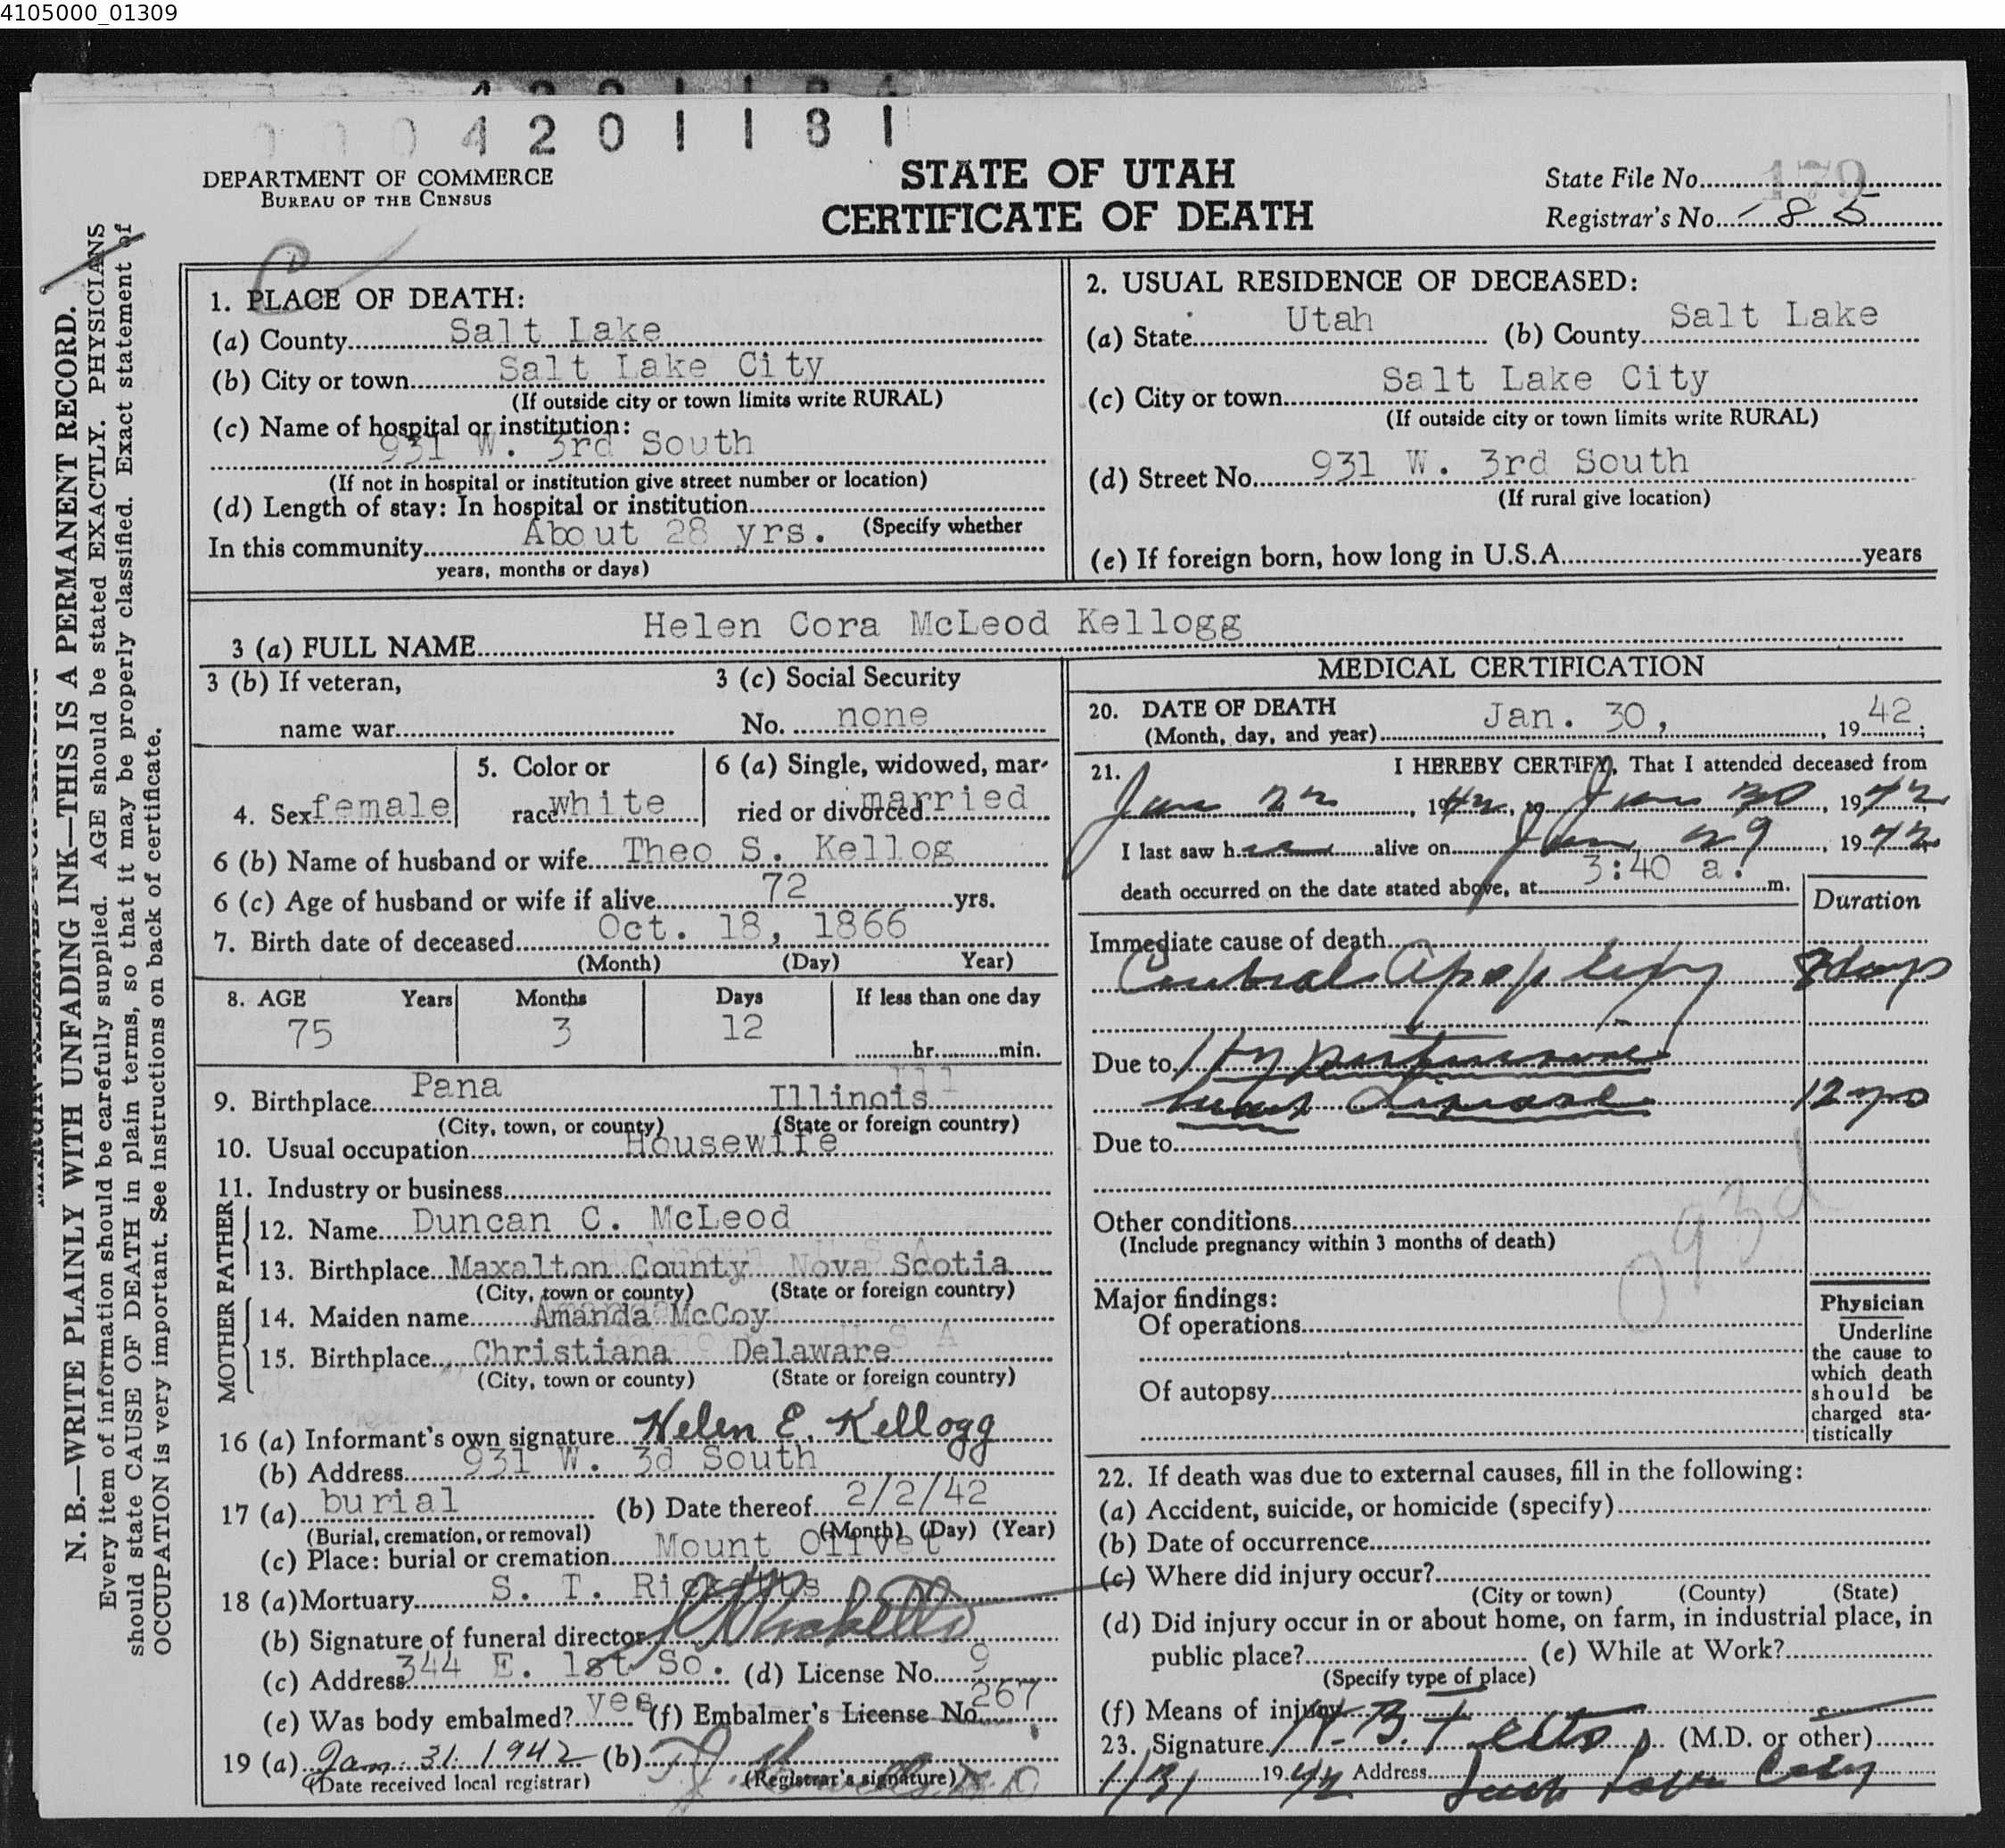 4105000_01309
0004201181
DEPARTMENT OF COMMERCE
BUREAU OF THE CENSUS
STATE OF UTAH
CERTIFICATE OF DEATH
State File No. 179
Registrar's No. 185
N. B.—WRITE PLAINLY WITH UNFADING INK—THIS IS A PERMANENT RECORD.
Every item of information should be carefully supplied. AGE should be stated EXACTLY. PHYSICIANS
should state CAUSE OF DEATH in plain terms, so that it may be properly classified. Exact statement of
OCCUPATION is very important. See instructions on back of certificate.
1. PLACE OF DEATH:
(a) County Salt Lake
(b) City or town Salt Lake City
(If outside city or town limits write RURAL)
(c) Name of hospital or institution:
931 W. 3rd South
(If not in hospital or institution give street number or location)
(d) Length of stay: In hospital or institution
(Specify whether
In this community About 28 yrs.
years, months or days)
2. USUAL RESIDENCE OF DECEASED:
(a) State Utah (b) County Salt Lake
(c) City or town Salt Lake City
(If outside city or town limits write RURAL)
(d) Street No. 931 W. 3rd South
(If rural give location)
(e) If foreign born, how long in U.S.A. years
3 (a) FULL NAME Helen Cora McLeod Kellogg
3 (b) If veteran,
name war
3 (c) Social Security
No. none
4. Sex female
5. Color or
race white
6 (a) Single, widowed, mar-
ried or divorced married
6 (b) Name of husband or wife Theo S. Kellog
6 (c) Age of husband or wife if alive 72 yrs.
7. Birth date of deceased Oct. 18, 1866
(Month) (Day) Year)
8. AGE Years Months Days If less than one day
75 3 12 hr. min.
9. Birthplace Pana Illinois
(City, town, or county) (State or foreign country)
10. Usual occupation Housewife
11. Industry or business
FATHER
12. Name Duncan C. McLeod
13. Birthplace Maxalton County Nova Scotia
(City, town or county) (State or foreign country)
MOTHER
14. Maiden name Amanda McCoy
15. Birthplace Christiana Delaware
(City, town or county) (State or foreign country)
16 (a) Informant's own signature Helen E. Kellogg
(b) Address 931 W. 3d South
17 (a) burial (b) Date thereof 2/2/42
(Burial, cremation, or removal) (Month) (Day) (Year)
(c) Place: burial or cremation Mount Olivet
18 (a) Mortuary S. T. Ricketts
(b) Signature of funeral director Ricketts
(c) Address 344 E. 1st So. (d) License No. 9
(e) Was body embalmed? yes (f) Embalmer's License No. 267
19 (a) Jan. 31. 1942 (b)
(Date received local registrar) (Registrar's signature)
MEDICAL CERTIFICATION
20. DATE OF DEATH
(Month, day, and year) Jan. 30, 1942;
21. I HEREBY CERTIFY, That I attended deceased from
Jan 22, 1942, to Jan 30, 1942
I last saw her alive on Jan 29, 1942
death occurred on the date stated above, at 3:40 a. m.
Duration
Immediate cause of death
Cerebral Apoplexy 8 days
Due to Hypertensive
heart disease 12 yrs
Due to
Other conditions
(Include pregnancy within 3 months of death)
093d
Major findings:
Of operations
Of autopsy
Physician
Underline
the cause to
which death
should be
charged sta-
tistically
22. If death was due to external causes, fill in the following:
(a) Accident, suicide, or homicide (specify)
(b) Date of occurrence
(c) Where did injury occur?
(City or town) (County) (State)
(d) Did injury occur in or about home, on farm, in industrial place, in
public place? (e) While at Work?
(Specify type of place)
(f) Means of injury
23. Signature (M.D. or other)
1/31 1942 Address Salt Lake City